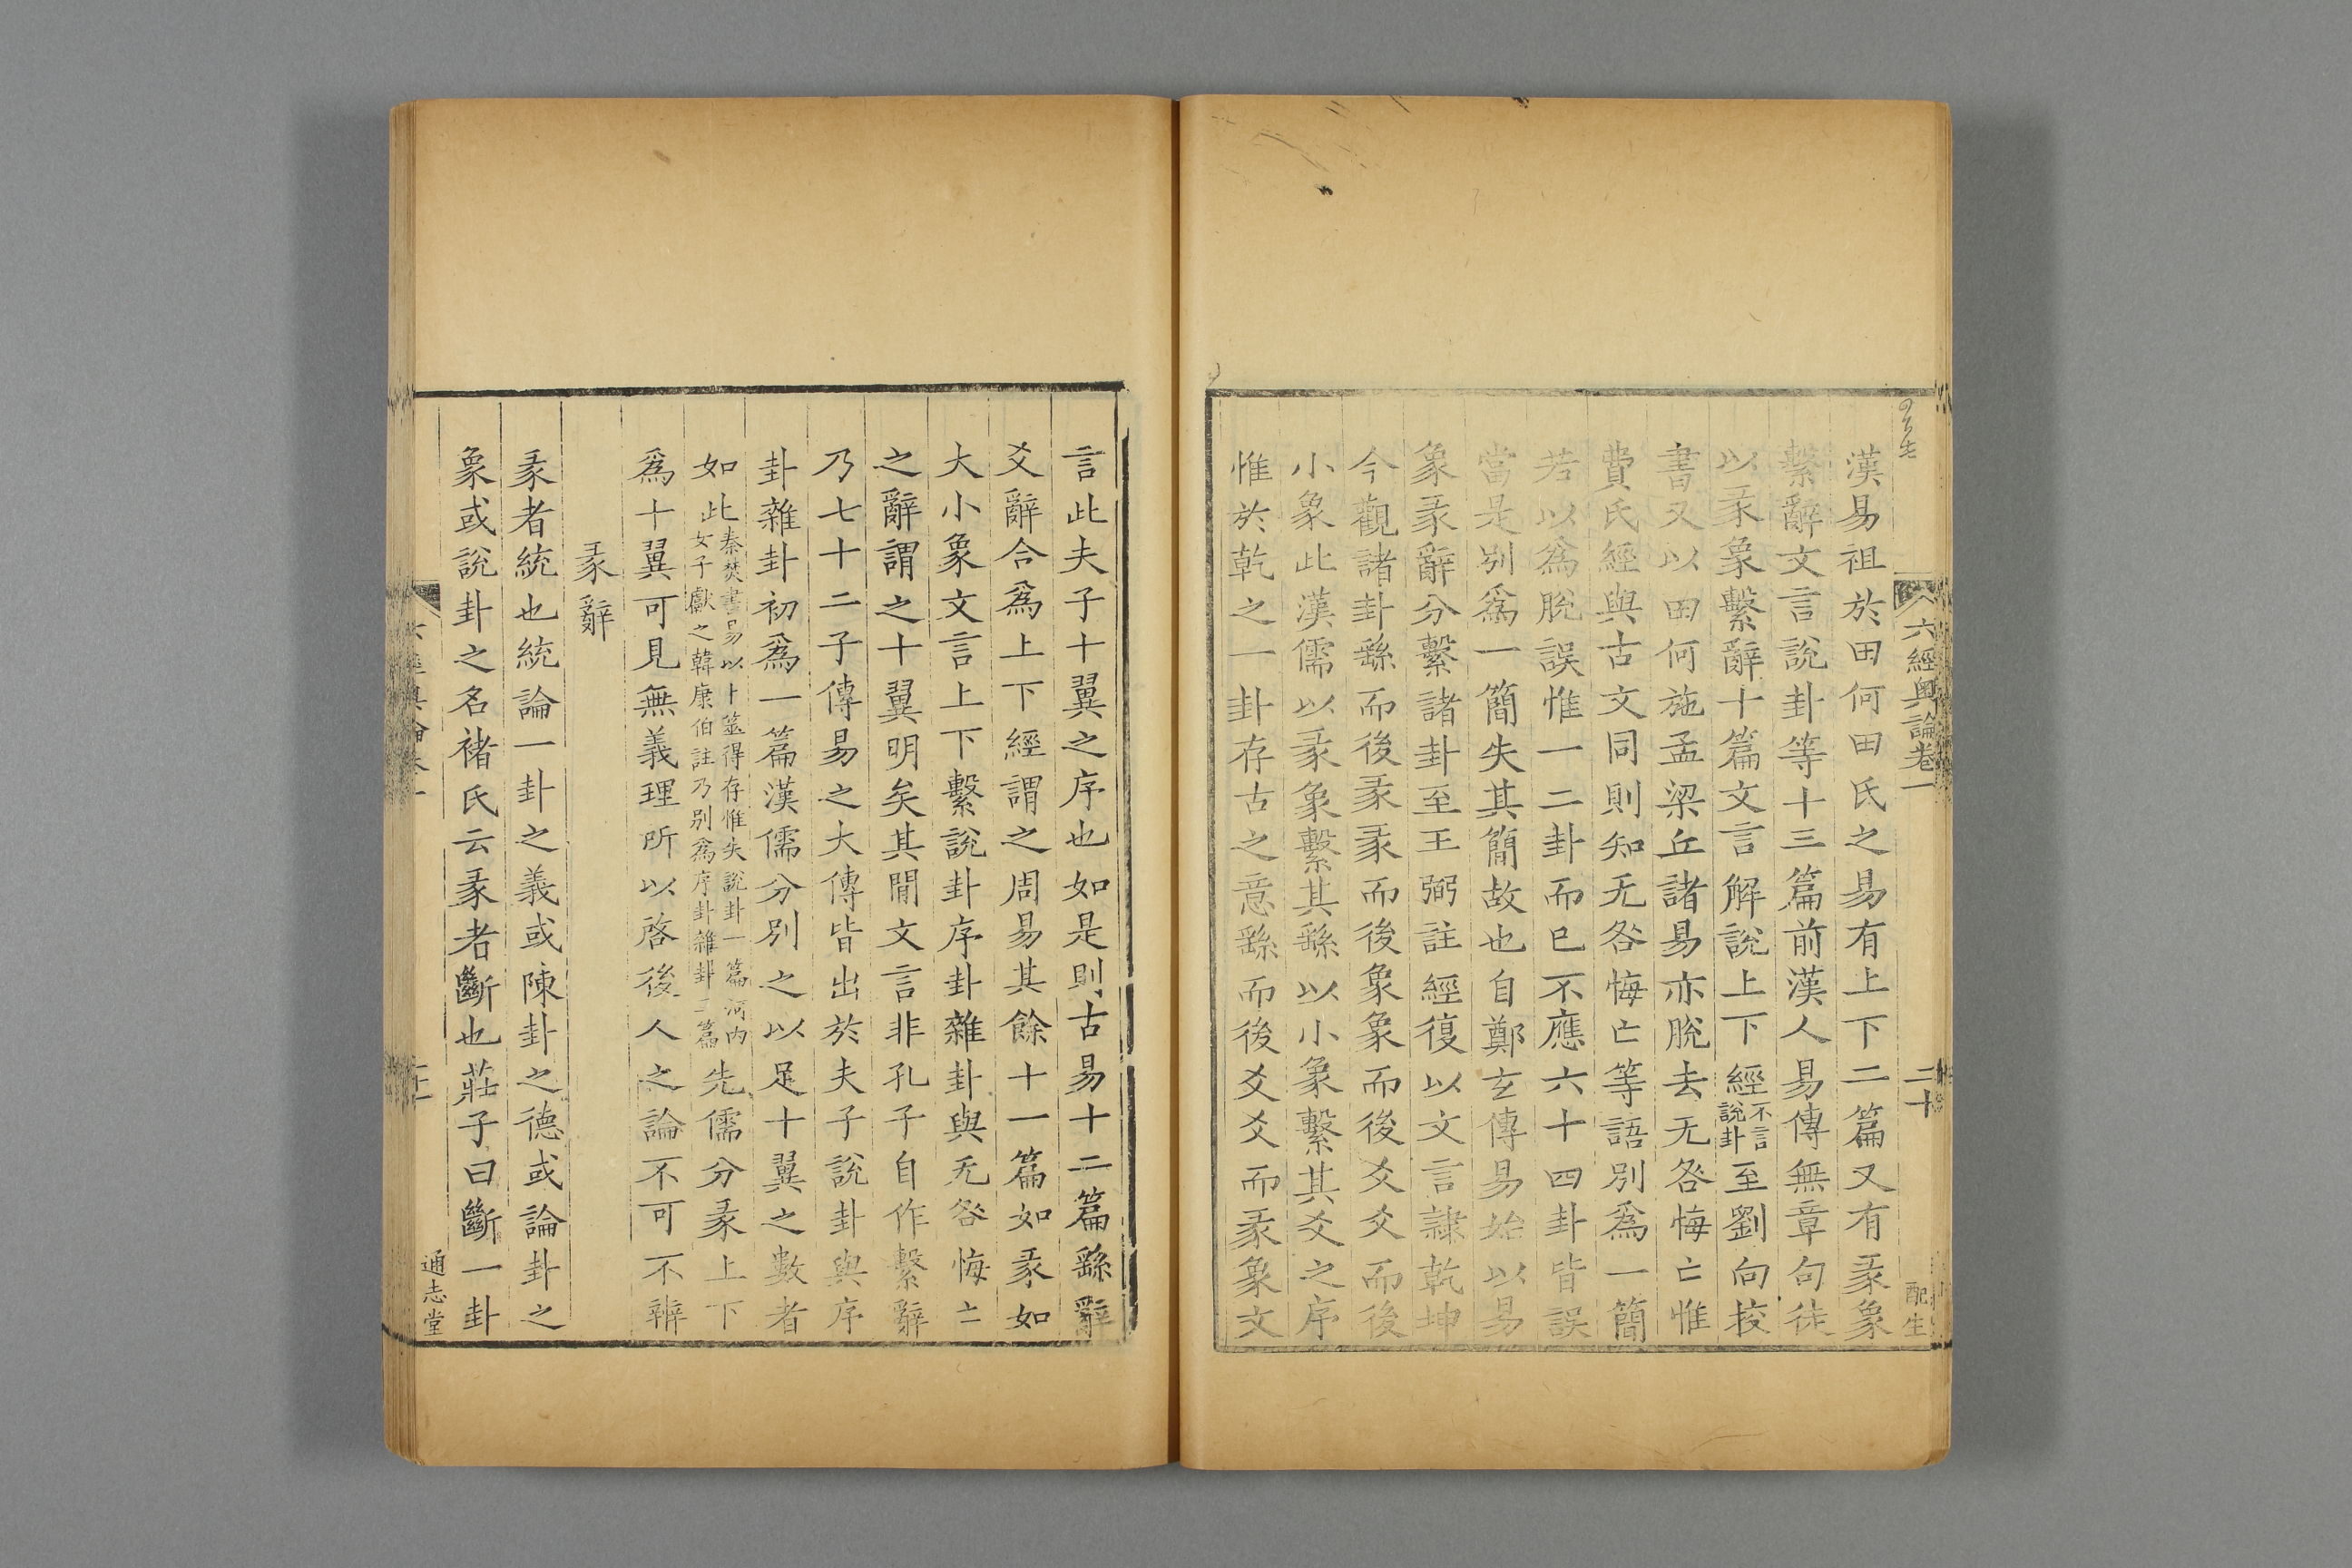 六經奧論卷一
二十
配生
漢易祖於田何田氏之易有上下二篇又有彖象
繫辭文言說卦等十三篇前漢人易傳無章句徒
以彖象繫辭十篇文言解說上下經不言說卦至劉向挍
書又以田何施孟梁丘諸易亦脫去无咎悔亡惟
費氏經與古文同則知无咎悔亡等語別爲一簡
若以爲脫誤惟一二卦而已不應六十四卦皆誤
當是別爲一簡失其簡故也自鄭玄傳易始以易
象彖辭分繫諸卦至王弼註經復以文言隷乾坤
今觀諸卦繇而後彖彖而後象象而後爻爻而後
小象此漢儒以彖象繫其繇以小象繫其爻之序
惟於乾之一卦存古之意繇而後爻爻而彖象文
言此夫子十翼之序也如是則古易十二篇繇辭
爻辭合爲上下經謂之周易其餘十一篇如彖如
大小象文言上下繫說卦序卦雜卦與无咎悔亡
之辭謂之十翼明矣其閒文言非孔子自作繫辭
乃七十二子傳易之大傳皆出於夫子說卦與序
卦雜卦初爲一篇漢儒分別之以足十翼之數者
如此秦焚書易以卜筮得存惟失說卦一篇河内女子獻之韓康伯註乃別爲序卦雜卦二篇先儒分彖上下
爲十翼可見無義理所以啓後人之論不可不辨
彖辭
彖者統也統論一卦之義或陳卦之德或論卦之
象或說卦之名褚氏云彖者斷也莊子曰斷一卦
通志堂